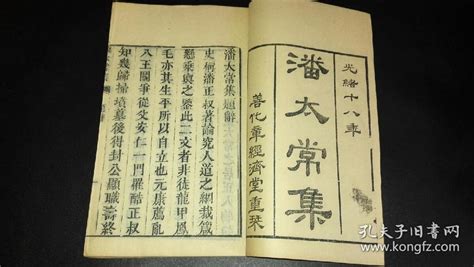 光緒十八年
潘太常集
善化章經濟堂重栞
潘太常集題辭
史稱潘正叔著論究人道之綱裁箴
懸乘輿之鑒此二文者非徒龍甲鳳
毛亦其生平自立也元康亂
八王鬭爭從父安仁一門罹酷正叔
知幾歸掃墳墓後得封公顯職壽終
孔夫子旧书网
www.kongfz.com